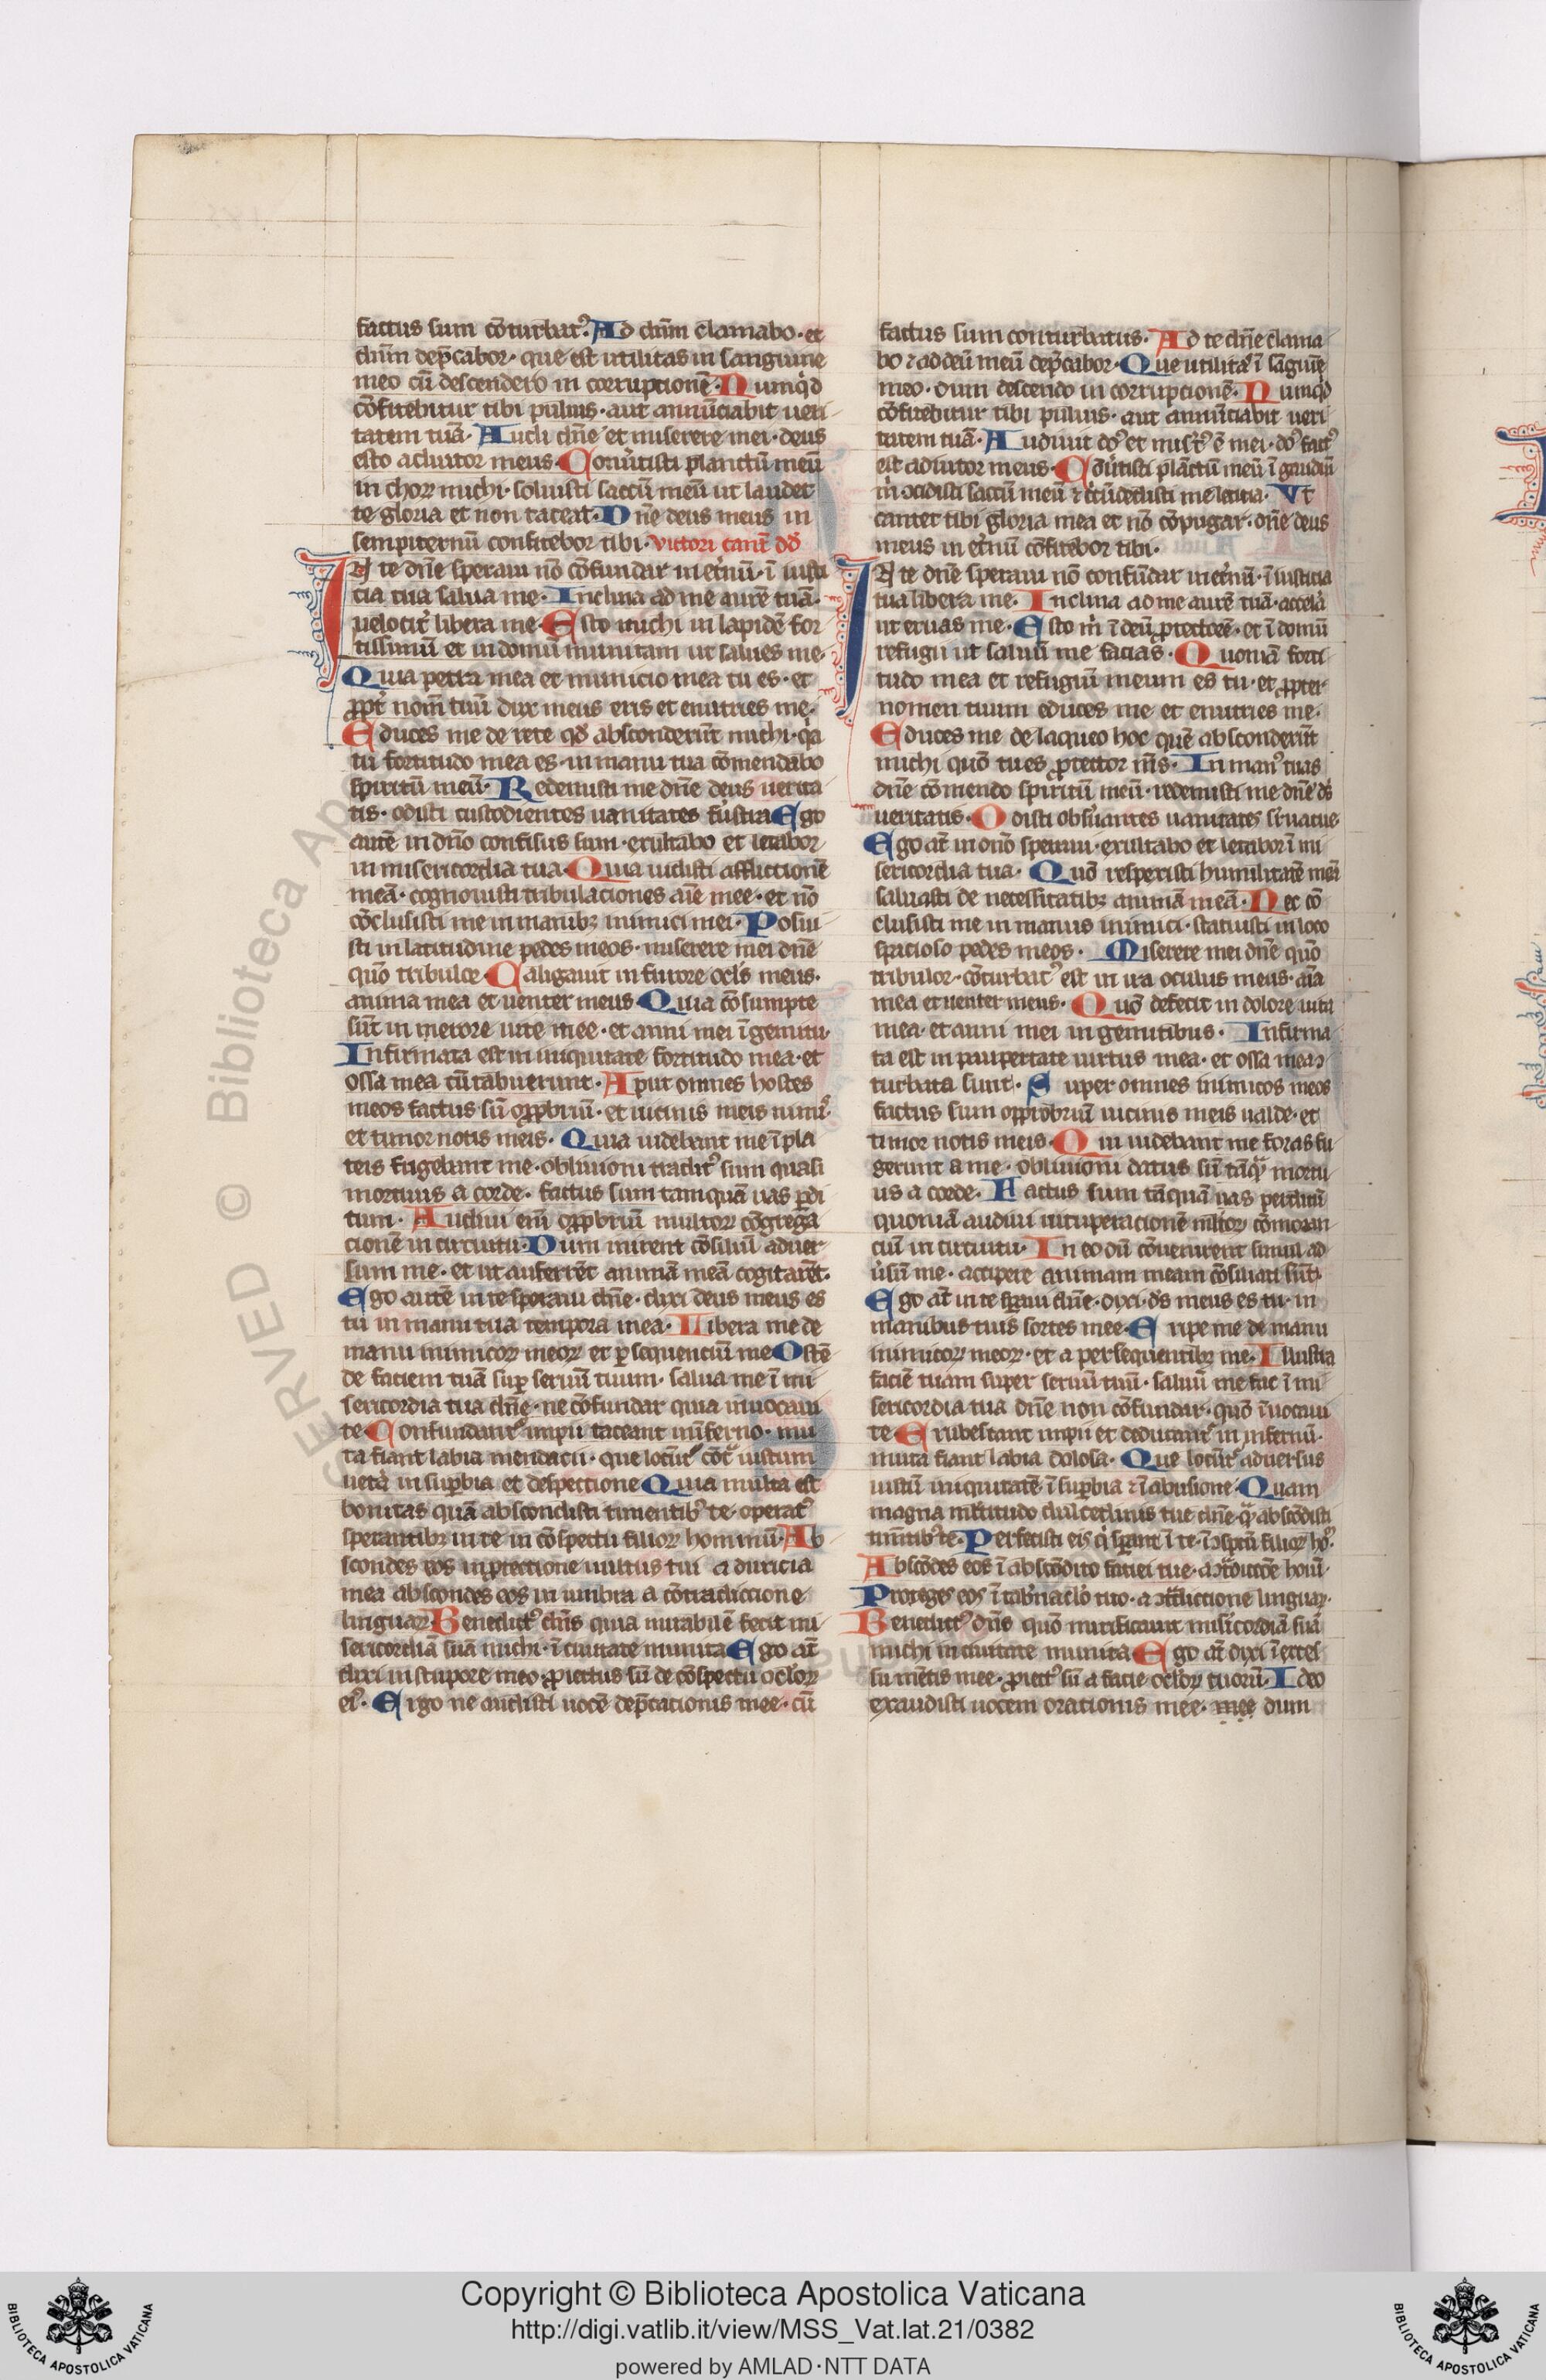 factus sum co̅turbatꝰ. Ad dn̅m clamabo · et
dn̅m dep̅cabor · que est utilitas in sanguine
meo cu̅ descendero in corruptione̅ · Numq͛d
co̅fitebitur tibi puluis · aut annu̅ciabit ueri
tatem tua̅ · Audi dn̅e et miserere mei · deus
esto adiutor meus · Conu̓tisti planctu̅ meu̅
in choꝝ michi · soluisti saccu̅ meu̅ ut laudet
te gloria et non taceat · Dn̅e deus meus in
sempiternu̅ confitebor tibi · victori cant̅ dd̓
IN te dn̅e speraui no̅ co̅fundar in et̓nu̅ · i̅ iusti
cia tua salua me · Inclina ad me aure̅ tua̅ ·
uelocit̓ libera me · Esto michi in lapide̅ for
tissimu̅ et in domu̅ munitam ut salues me ·
Quia petra mea et municio mea tu es · et
ꝓpt̓ nom̅ tuu̅ dux meus eris et enutries me ·
Educes me de rete qd̓ absconderu̅t michi · q͛a
tu fortitudo mea es · in manu tua co̅mendabo
spiritu̅ meu̅ · Redemisti me dn̅e deus uerita
tis · odisti custodientes uanitates fu̓stra Ego
aute̅ in dn̅o confisus sum · exultabo et letabor
in misericordia tua · Quia uidisti afflictione̅
mea̅ · cognouisti tribulaciones ai̅e mee · et no̅
co̅clusisti me in manibꝫ inimici mei · Posui
sti in latitudine pedes meos · miserere mei dn̅e
quo̅ tribulor Caligauit in furore ocl̓s meus ·
anima mea et uenter meus Quia co̅sumpte
su̅t in merore uite mee · et anni mei i̅ gemitu ·
Infirmata est in iniquitate fortitudo mea · et
ossa mea co̅tabuerunt · Aput omnes hostes
meos factus su̅ opꝓbriu̅ · et uicinis meis nimi͛ ·
et timor notis meis · Quia uidebant me i̅ pla
teis fugebant me · obliuioni traditꝰ sum quasi
mortuus a corde · factus sum tamqua̅ uas ꝑdi
tum · Audiui eni̅ opꝓbriu̅ multoꝝ co̅grega
cione̅ in circuitu · Dum inirent co̅siliu̅ aduer
sum me · et ut auferre̅t anima̅ mea̅ cogitare̅t ·
Ego aute̅ in te speraui dn̅e · dixi deus meus es
tu in manu tua tempora mea · Libera me de
manu inimicoꝝ meoꝝ et ꝑsequenciu̅ me Oste̅
de faciem tua̅ suꝑ seruu̅ tuum · salua me i̅ mi
sericordia tua dn̅e · ne co̅fundar quia inuocaui
te · Confundantꝰ impii taceant in inferno · mu
ta fiant labia mendacii · que locu̅tꝰ co̅t͛ iustum
uet̓a in suꝑbia et despectione Quia multa est
bonitas qua̅ abscondisti timentibꝰ te · operatꝰ
sperantibꝫ in te in co̅spectu filioꝝ hominu̅ · Ab
scondes eos in ꝓtectione uultus tui a duricia
mea abscondes eos in umbra a co̅tradiccione
linguaꝝ Benedictꝰ dn̅s quia mirabile̅ fecit mi
sericordia̅ sua̅ michi · i̅ ciuitate munita Ego at̅
dixi in stupore meo · ꝓiectus su̅ de co̅spectu ocl̓oꝝ
eiꝰ · Ergo ne audisti uoce̅ dep̅cationis mee · cu̅
factus sum conturbatus · Ad te dn̅e clama
bo ⁊ ad deu̅ meu̅ dep̅cabor · Que utilitas i̅ sa̅gui̅e
meo · dum descendo in corruptione̅ · Numq͛d
co̅fitebitur tibi puluis · aut annu̅ciabit ueri
tatem tua̅ · Audiuit do̓ et misert̓ e̅ mei · do̓ factꝰ
est adiutor meus · Co̅u̓tisti pla̅ctu̅ meu̅ i̅ gaudiu̅
m͛ co̅cidisti saccu̅ meu̅ ⁊ ci̓cu̅dedisti me leticia · Vt
cantet tibi gloria mea et no̅ co̅pu̅gar · dn̅e deus
meus in et̓nu̅ co̅fitebor tibi ·
IN te dn̅e speraui no̅ confu̅dar in et̓nu̅ · i̅ iusticia
tua libera me · Inclina ad me aure̅ tua̅ · accel̓a
ut eruas me · Esto m͛ i̅ deu̅ ꝓtectore̅ · et i̅ domu̅
refugii ut saluu̅ me facias · Quonia̅ forti
tudo mea et refugiu̅ meum es tu · et ꝓpter
nomen tuum educes me et enutries me ·
Educes me de laqueo hoc que̅ absconderu̅t
michi quo̅ tu es ꝓtector m̅s · In manꝰ tuas
dn̅e co̅mendo spiritu̅ meu̅ · redemisti me dn̅e d̓s
ueritatis · Odisti obsu̓antes uanitates su̓uacue
Ego at̅ in dn̅o speraui · exultabo et letabor i̅ mi
sericordia tua · Quo̅ respexisti humilitate̅ mea̅
saluasti de necessitatibꝫ anima̅ mea̅ · Nec co̅
clusisti me in manus inimici · statuisti in loco
spacioso pedes meos · Miserere mei dn̅e quo̅
tribulor · co̅turbatꝰ est in ira oculus meus · ai̅a
mea et uenter meus · Quo̅ defecit in dolore uita
mea · et anni mei in gemitibus · Infirma
ta est in paupertate uirtus mea · et ossa mea
turbata sunt · Super omnes inimicos meos
factus sum opprobriu̅ uicinis meis ualde · et
timor notis meis · Qui uidebant me foras fu
gerunt a me · obliuioni datus su̅ ta̅q͛ mortu
us a corde · Factus sum ta̅qua̅ uas perditu̅
quonia̅ audiui uituperacione̅ ml̅toꝝ co̅moran
ciu̅ in circuitu · In eo du̅ co̅uenirent simul ad
u̓su̅ me · accipere animam meam co̅siliati su̅t ·
Ego at̅ in te sꝑaui dn̅e · dixi · d̓s meus es tu · in
manibus tuis sortes mee · Eripe me de manu
inimicoꝝ meoꝝ · et a persequentibꝫ me · Illustra
facie̅ tuam super seruu̅ tuu̅ · saluu̅ me fac i̅ mi
sericordia tua dn̅e non co̅fundar · quo̅ i̅uocaui
te Erubescant impii et deducant᷑ in infernu̅ ·
muta fiant labia dolosa · Que locu̅t᷑ aduersus
iustu̅ iniquitate̅ i̅ suꝑbia ⁊ i̅ abusione · Quam
magna ml̅titudo dulcedinis tue dn̅e · q͛ absco̅disti
time̅tibꝰ te · Perfecisti eis q͛ sꝑant i̅ te · i̅ co̅spc̅tu filioꝝ hoꝰ ·
Absco̅des eos i̅ absco̅dito faciei tue · a co̅t͛dicco̅e homi̅ ·
Proteges eos i̅ tab̓naclo̓ tuo · a co̅t͛diccione linguaꝝ ·
Benedictꝰ dn̅s quo̅ mirificauit mis̓icordia̅ sua̅
michi in ciuitate munita Ego at̅ dixi i̅ exces
su me̅tis mee · ꝓiectꝰ su̅ a facie ocl̓oꝝ tuoru̅ · Ideo
exaudisti uocem orationis mee · mee dum
© Biblioteca Apo
ERVED
Copyright © Biblioteca Apostolica Vaticana
http://digi.vatlib.it/view/MSS_Vat.lat.21/0382
powered by AMLAD·NTT DATA
BIBLIOTECA APOSTOLICA VATICANA
BIBLIOTECA APOSTOLICA VATICANA